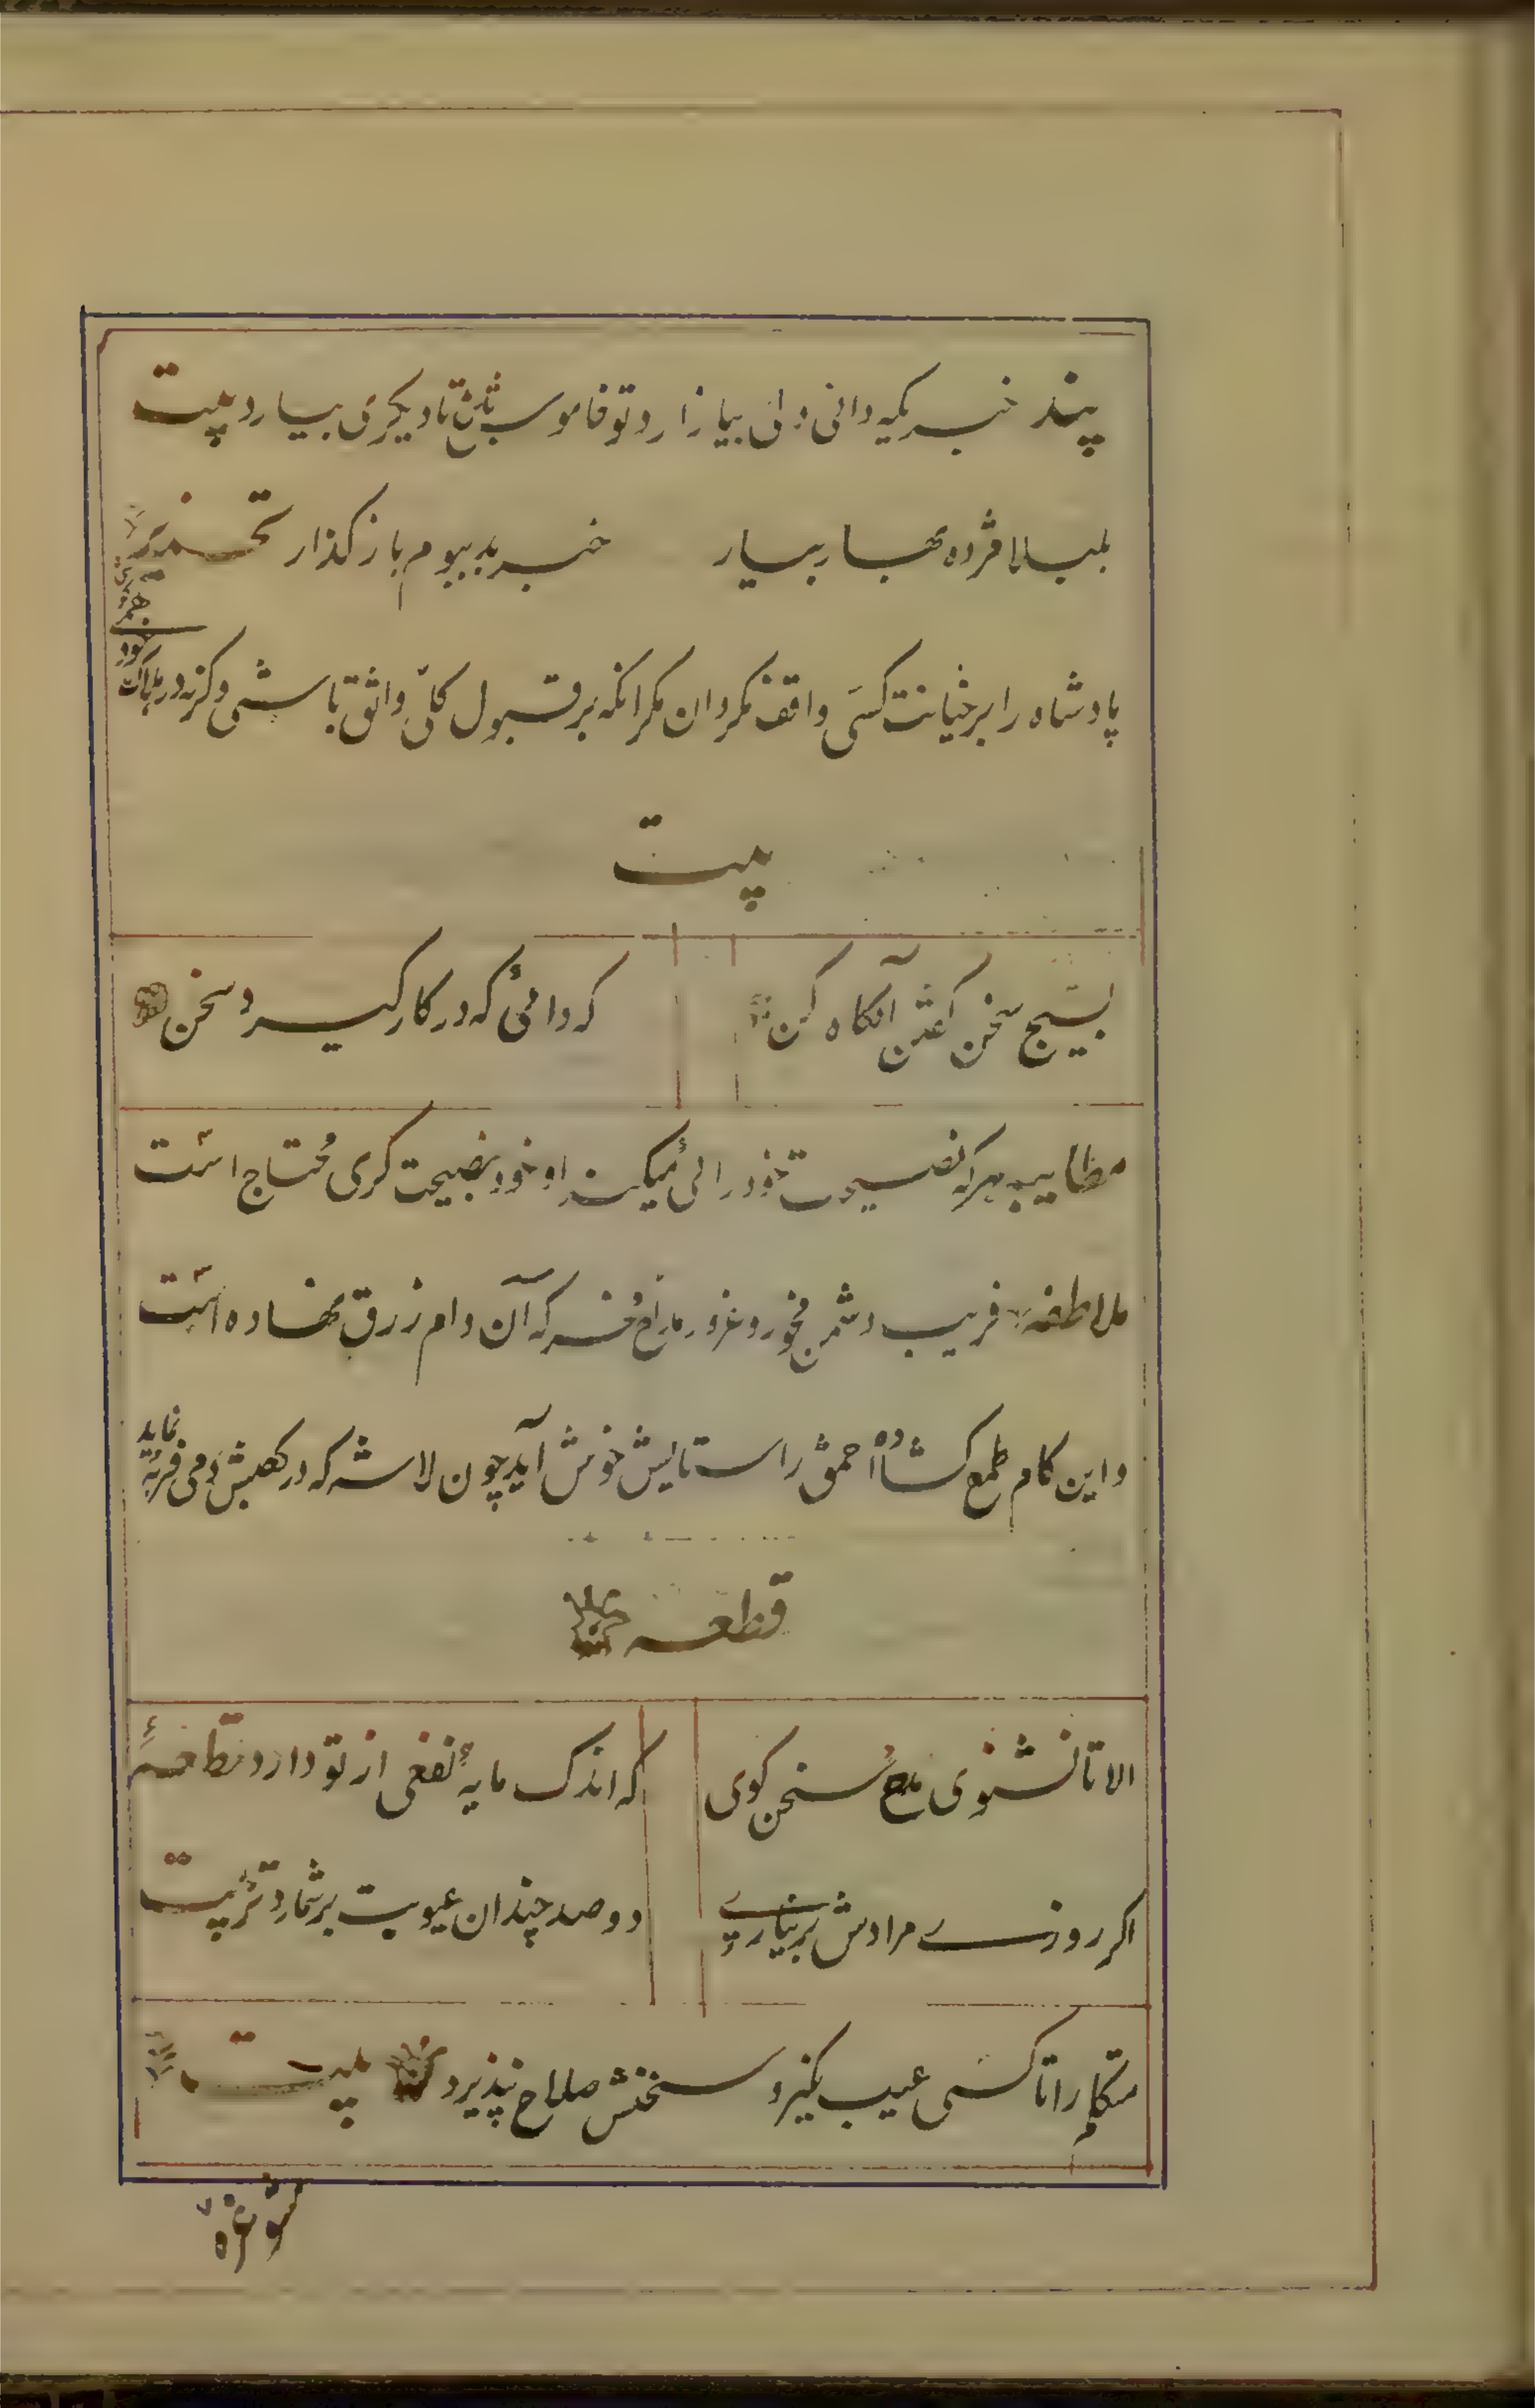 پند خبریکه دانی دلی بیازارد تو خاموش باش تا دیگری بیارد بیت
بلبلا مژده بهار بیار خبر بد ببوم باز گذار تحذیر
پادشاه را بر خیانت کسی واقف مگردان مگر آنکه بر قبول کلّی واثق باشی وگرنه در هلاک
خود
بیت
بسیج سخن گفتن آنگاه کن
که دانی که در کار گیرد سخن
مطایبه هر که نصیحت خود رائی میکند او خود بنصیحت گری محتاج است
ملاطفه فریب دشمن مخور و غرور مداح مخر که آن دام زرق نهاده است
و این کام طمع گشاده احمق را ستایش خوش آید چون لاشه که در کعبش دمی فربه
نماید
قطعه
الا تا نشنوی مدح سخن گوی
که اندک مایهٔ نفعی از تو دارد
اگر روزے مرادش بر نیارے
دو صد چندان عیوبت بر شمارد تربیت
متکلم را تا کسی عیب نگیرد سخنش صلاح نپذیرد بیت
مشو غره